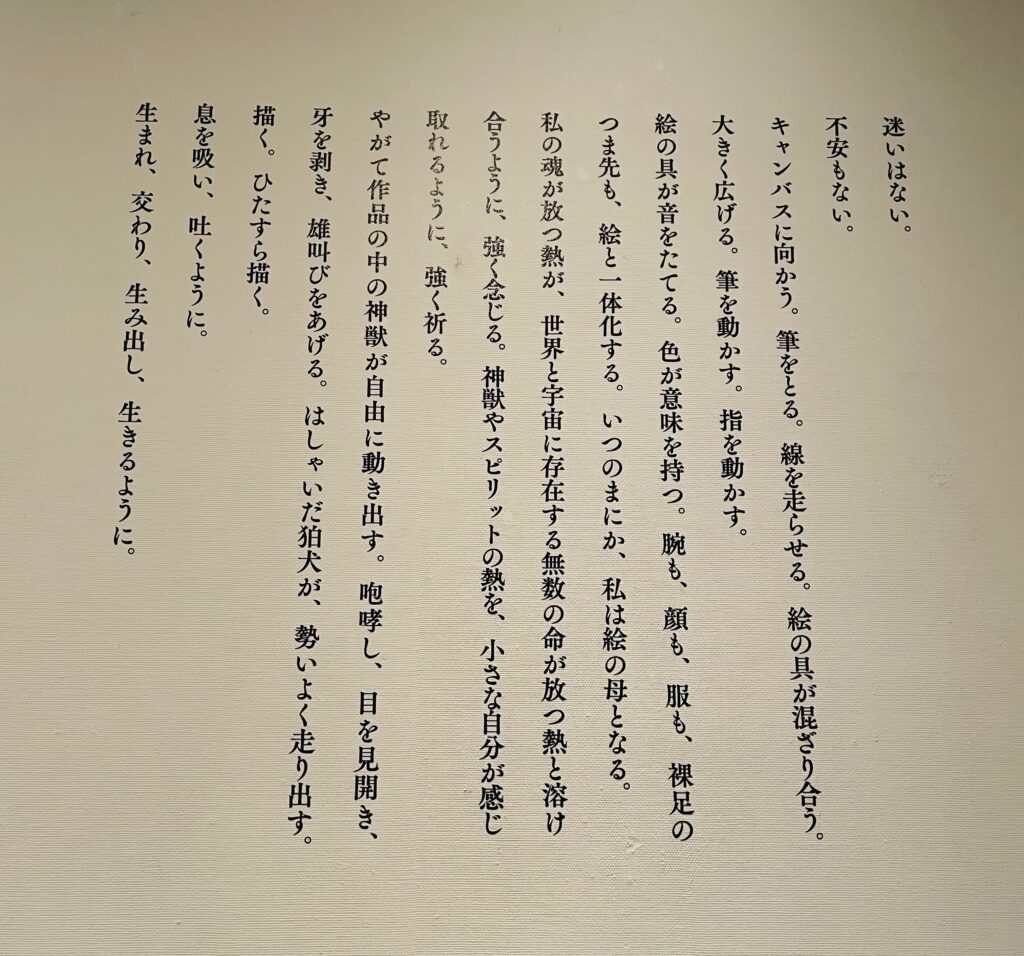 迷いはない。
不安もない。
キャンバスに向かう。筆をとる。線を走らせる。絵の具が混ざり合う。
大きく広げる。筆を動かす。指を動かす。
絵の具が音をたてる。色が意味を持つ。腕も、顔も、服も、裸足の
つま先も、絵と一体化する。いつのまにか、私は絵の母となる。
私の魂が放つ熱が、世界と宇宙に存在する無数の命が放つ熱と溶け
合うように、強く念じる。神獣やスピリットの熱を、小さな自分が感じ
取れるように、強く祈る。
やがて作品の中の神獣が自由に動き出す。咆哮し、目を見開き、
牙を剥き、雄叫びをあげる。はしゃいだ狛犬が、勢いよく走り出す。
描く。ひたすら描く。
息を吸い、吐くように。
生まれ、交わり、生み出し、生きるように。